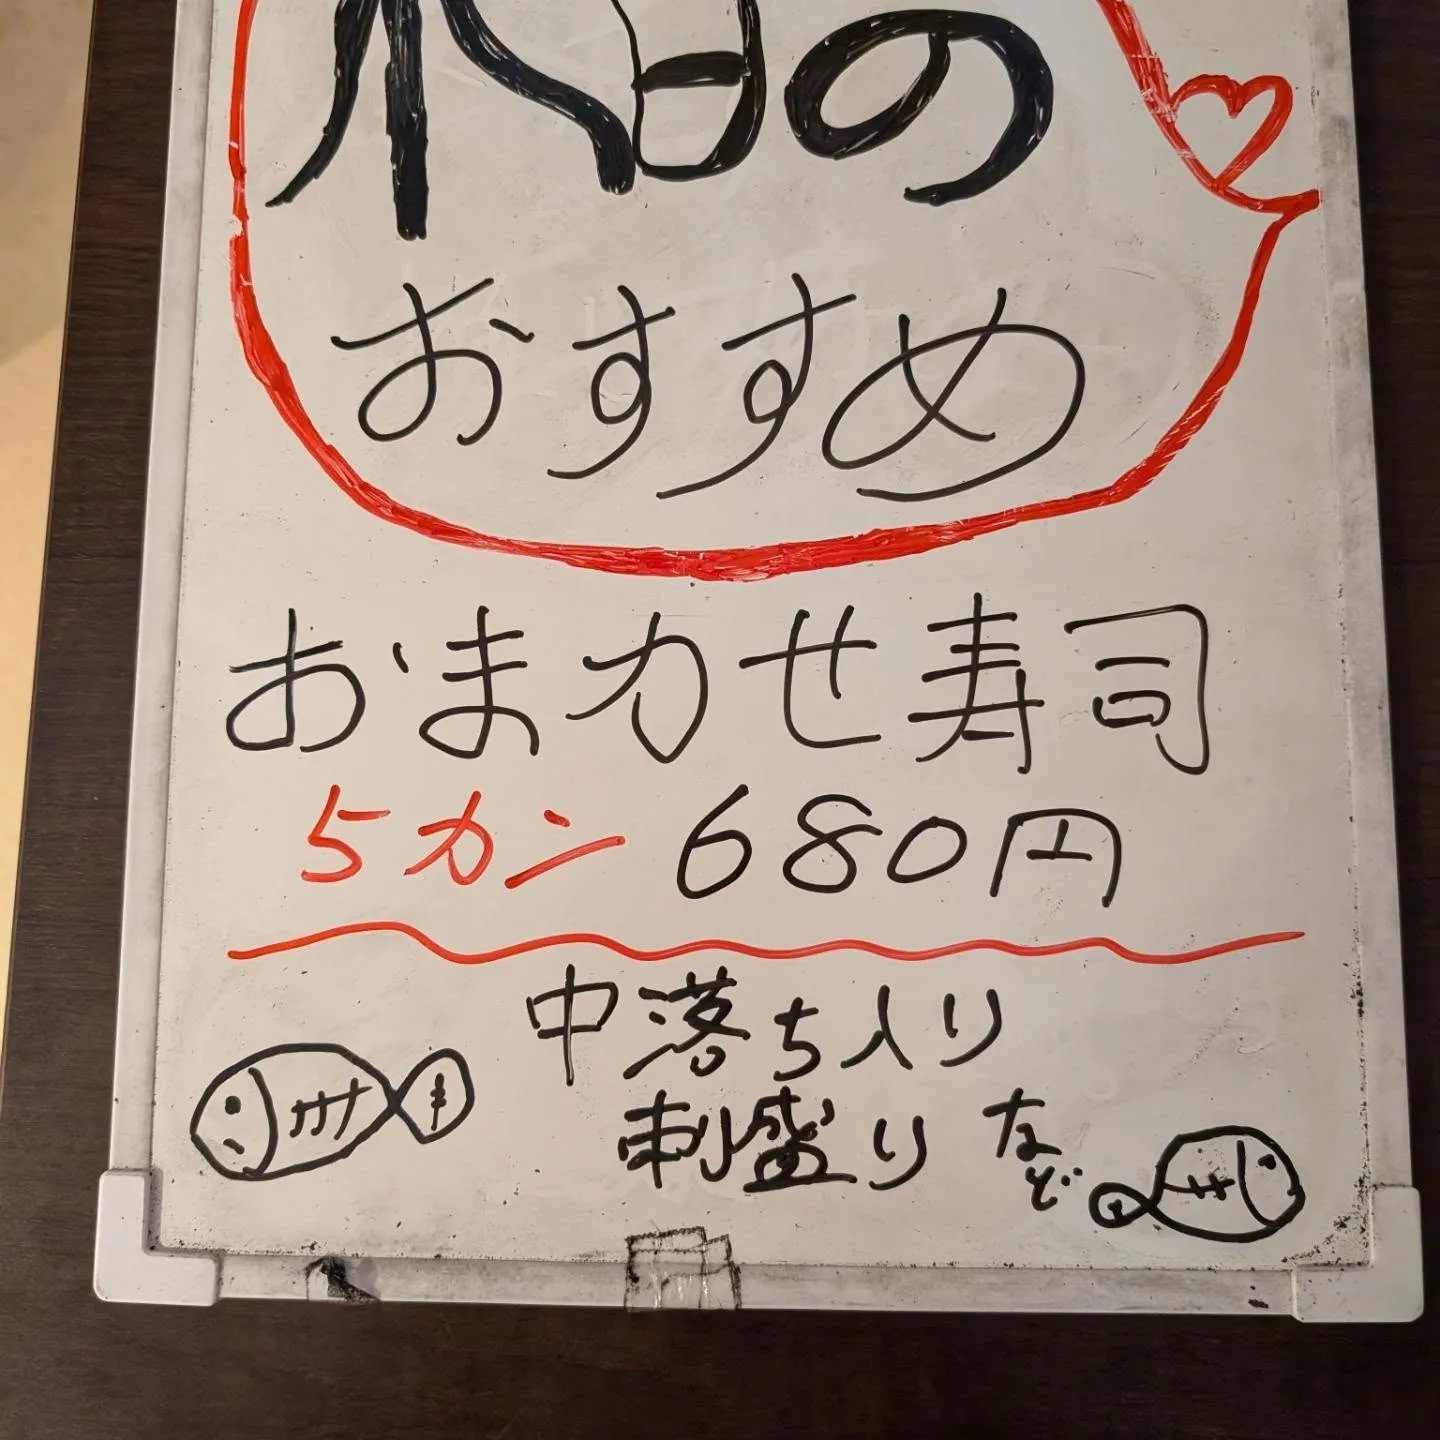 本日の
おすすめ
おまかせ寿司
5カン 680円
中落ち入り
刺盛り など